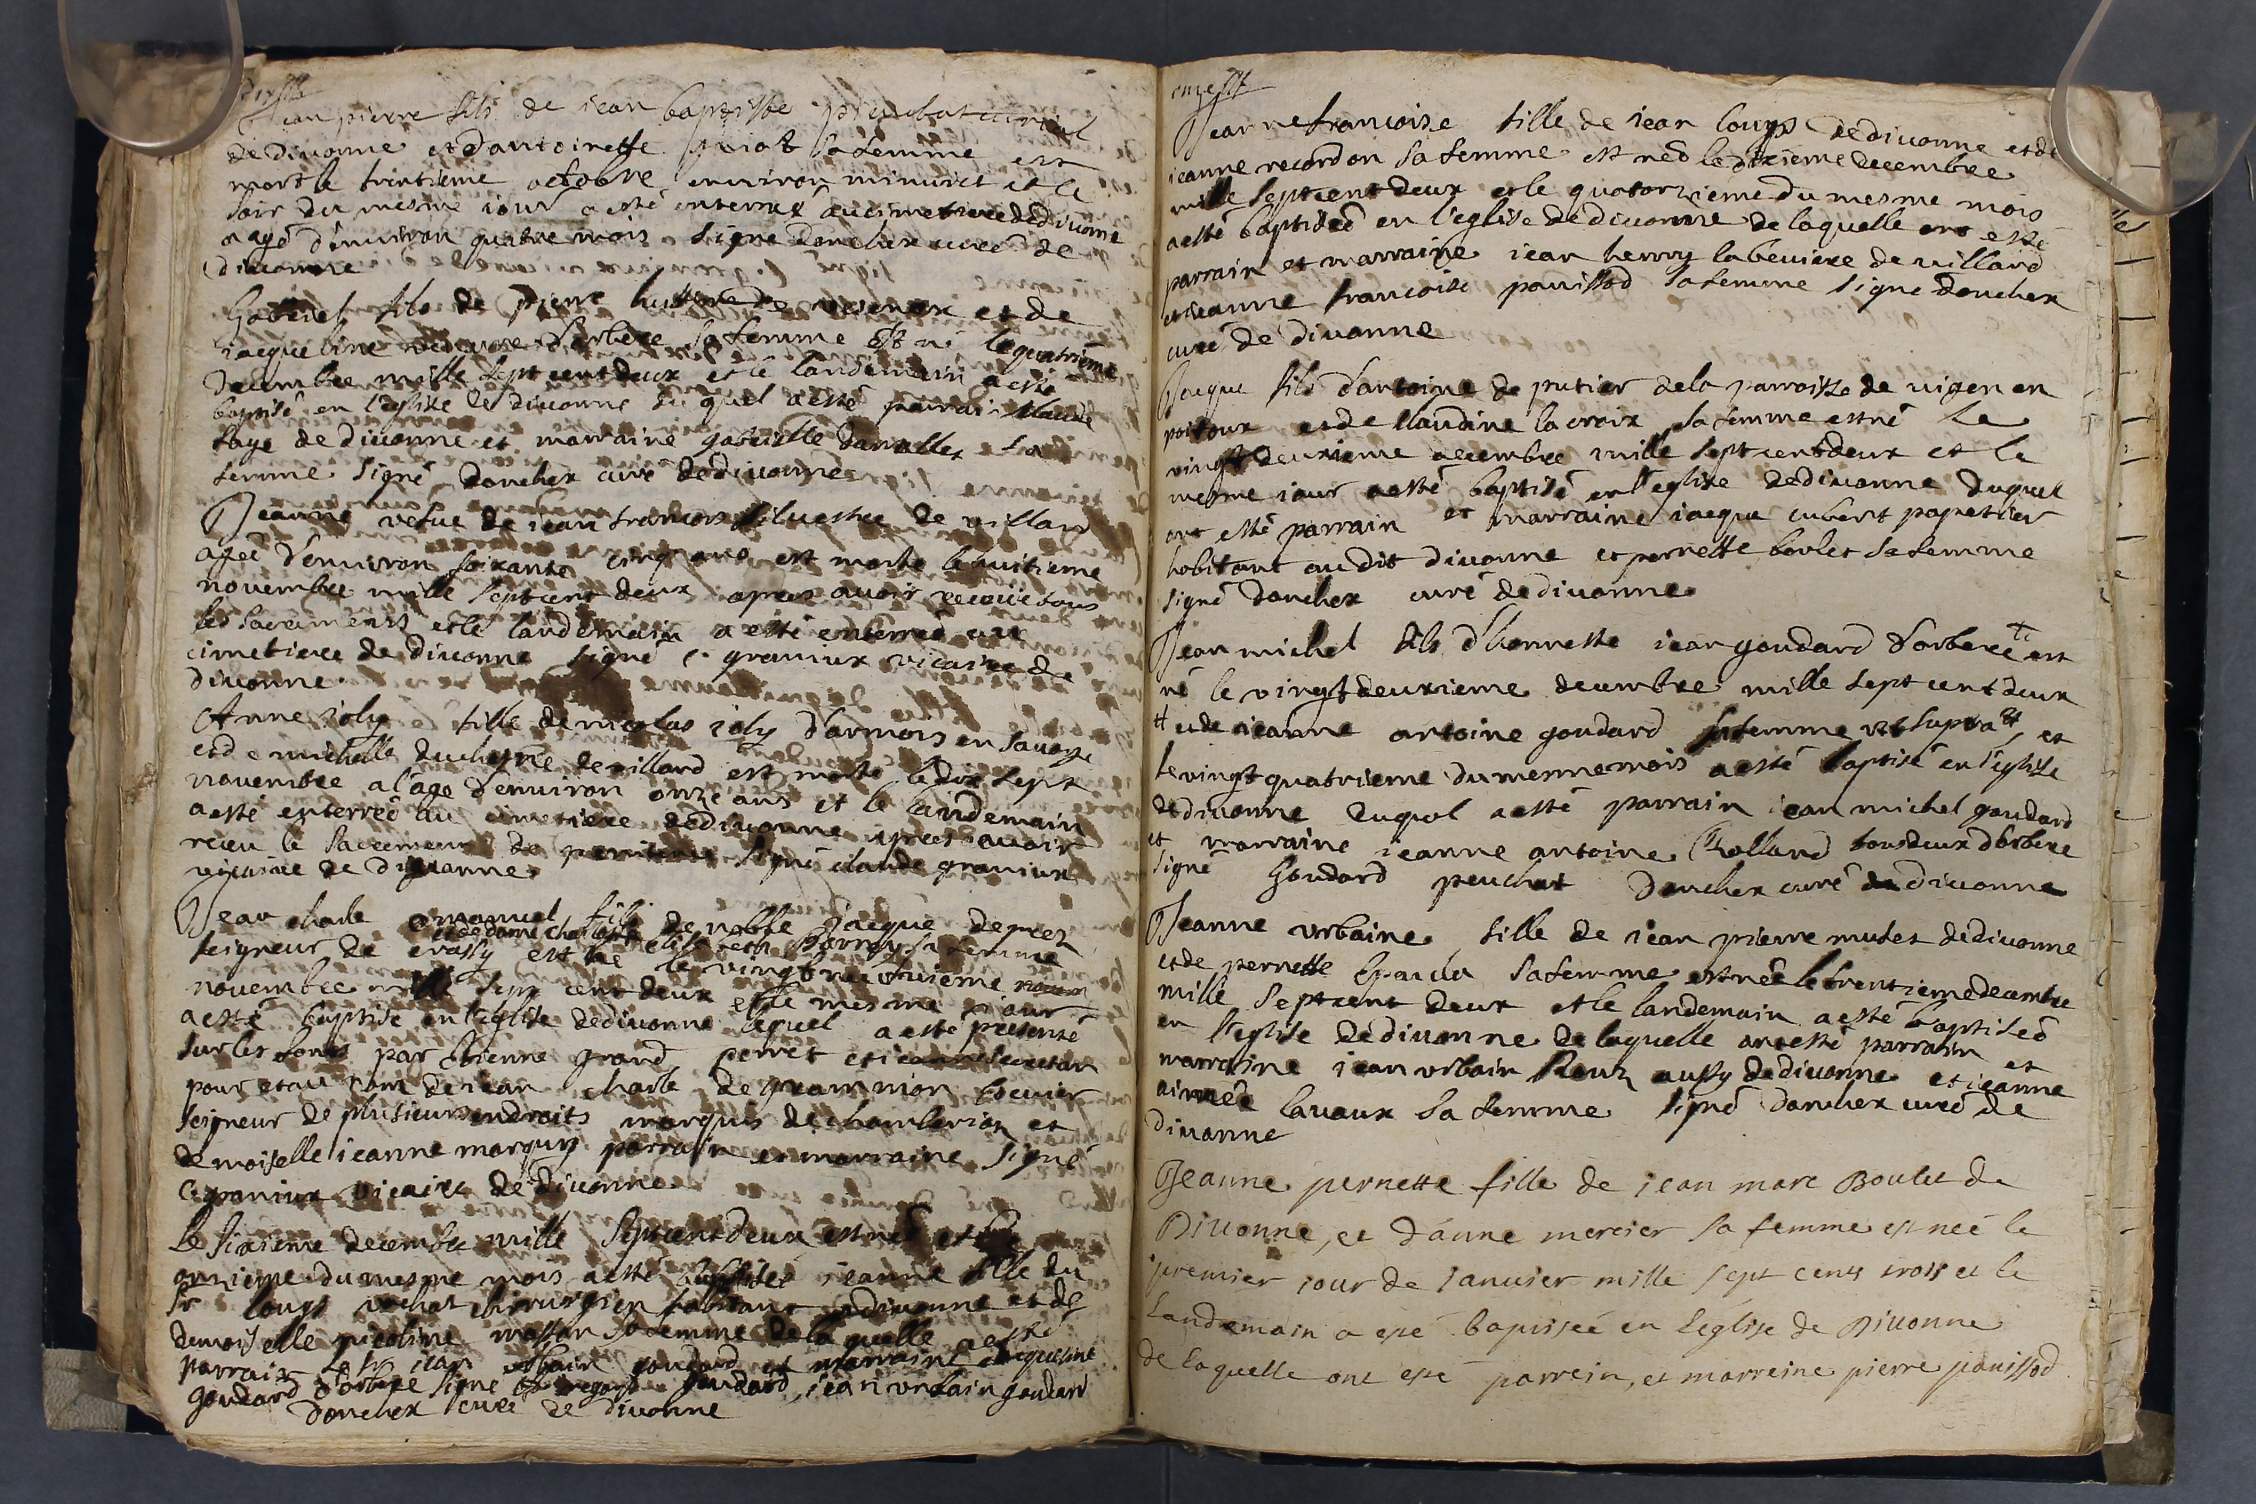 Jean pierre fils de iean baptiste
de diuonne et d'antoinette sa femme est
mort le trintieme octobre enuiron minuict et le
soir du mesme iour a esté enterré au cimetiere de diuonne
agé d'enuiron quatre mois signé donchex curé de
diuonne
Gabriel fils de pierre de vesenex et de
iacqueline d'arbere sa femme est né le quatrieme
decembre mille sept cent deux et le landemain a esté
baptisé en l'eglise de diuonne du quel a esté parrain claude
sage de diuonne et marraine gabrielle sa
femme signé donchex curé de diuonne
Jeanne vefue de iean francois siluestre de villard
agée d'enuiron soixante cinq ans est morte le huitieme
nouembre mille sept cent deux apres auoir receu tous
les sacrements et le landemain a esté enterrée au
cimetiere de diuonne signé c. graniux vicaire de
diuonne
Anne ioly fille de nicolas ioly d'armois en sauoye
et de michelle duchesne de villard est morte le dix sept
nouembre a l'age d'enuiron onze ans et le landemain
a esté enterrée au cimetiere de diuonne apres auoir
receu le sacrement de penitence signé claude graniux
vicaire de diuonne
Jean charle emanuel fils de noble Jacque
et de dame charlotte elisabeth sa femme
seigneur de crassy est né le vingt
nouembre mille sept cent deux et le mesme iour
a esté baptisé en l'eglise de diuonne lequel a esté presenté
sur les fonts par etienne grand perret et ieanne
pour et au nom de iean charle de grammion
seigneur de plusieurs endroits marquis de chamberion et
demoiselle ieanne marquis parrain et marraine signé
c graniux vicaire de diuonne
Le sixieme decembre mille sept cent deux est née et le
onzieme du mesme mois a esté baptisée ieanne fille du
Sr louys vuchat chirurgien habitant a diuonne et de
demoiselle nicoline masson sa femme de laquelle a esté
parrain le sr iean urbain goudard et marraine iacqueline
goudard d'arbere signé goudard, iean vrbain goudard
donchex curé de diuonne
Jeanne francoise fille de iean louys de diuonne et de
ieanne recordon sa femme est née le dixieme decembre
mille sept cent deux et le quatorzieme du mesme mois
a esté baptisée en l'eglise de diuonne de laquelle ont esté
parrain et marraine iean henry labeuiere de villard
et ieanne francoise pauissod sa femme signé donchex
curé de diuonne
Jacque fils d'antoine de putier de la parroisse de vigen en
poitoux et de claudine la croix sa femme est né le
vingt deuxieme decembre mille sept cent deux et le
mesme iour a esté baptisé en l'eglise de diuonne duquel
ont esté parrain et marraine iacque cubert papetier
habitant au dit diuonne et pernette borlet sa femme
signé donchex curé de diuonne
Jean michel fils d'honneste iean goudard d'arbere est
né le vingt deuxieme decembre mille sept cent deux
et de ieanne antoine goudard sa femme vt supra et
le vingt quatrieme du mesme mois a esté baptisé en l'eglise
de diuonne duquel a esté parrain iean michel goudard
et marraine ieanne antoine Rolland tous deux d'arbere
signé Goudard peuchat donchex curé de diuonne
Jeanne vrbaine fille de iean pierre muset de diuonne
et de pernette sa femme est née le trentieme decembre
mille sept cent deux et le landemain a esté baptisée
en l'eglise de diuonne de laquelle ont esté parrain et
marraine iean vrbain Roux aussy de diuonne et ieanne
aimée lauaux sa femme signé donchex curé de
diuonne
Jeanne pernette fille de iean marc Boulet de
Diuonne, et d'anne mercier sa femme est neé le
premier iour de ianuier mille sept cents trois et le
landemain a esté baptiseé en l'église de Diuonne
de laquelle ont esté parrein, et marreine pierre pauissod